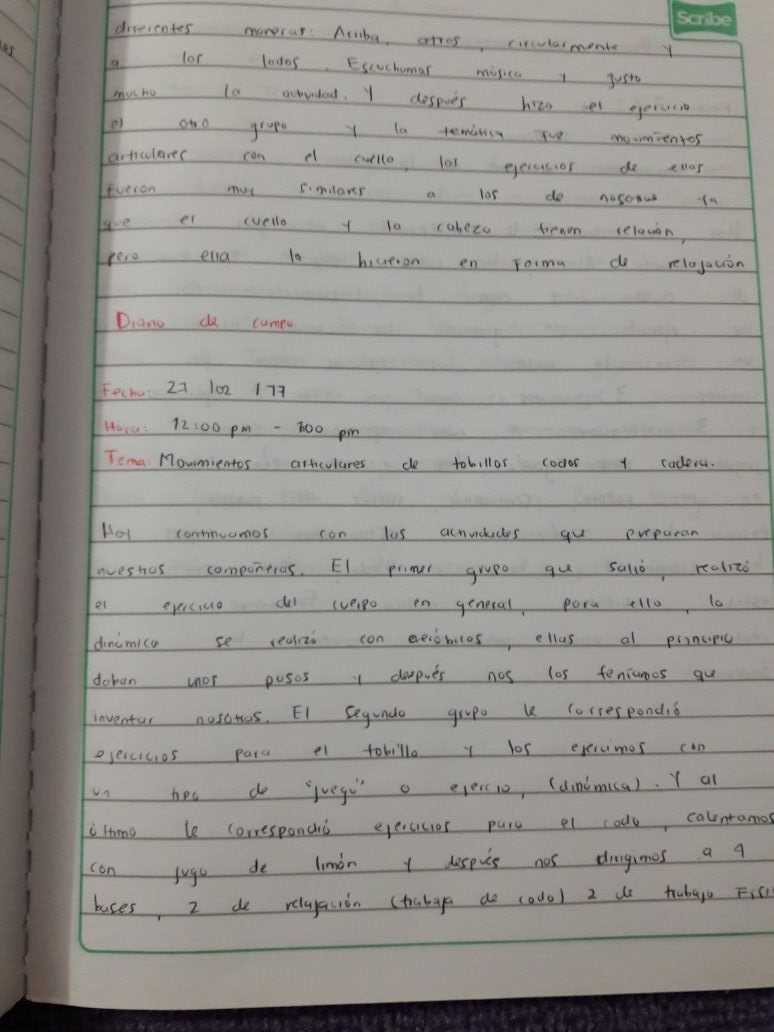 Scribe
diferentes maneras: Arriba, atras, circularmente y
a los lados. Escuchamas música y gusto
mucho la actividad. Y después hizo el ejercicio
el otro grupo y la temática fue movimientos
articulares con el cuello, los ejercicios de ellas
fueron muy similares a los de nosotras ya
que el cuello y la cabeza tienen relación,
pero ella lo hicieron en forma de relajación
Diario de campo
Fecha: 27 / 02 / 17
Hora: 12:00 pm - 1:00 pm
Tema: Movimientos articulares de tobillos codos y cadera.
Hoy continuamos con las actividades que preparan
nuestras compañeras. El primer grupo que salió, realizó
el ejercicio del cuerpo en general, para ello, la
dinámica se realizó con aeróbicos, ellas al principio
daban unos pasos y después nos los teníamos que
inventar nosotras. El segundo grupo le correspondió
ejercicios para el tobillo y los ejercimos con
un tipo de "juego" o ejercio, (dinámica). Y al
último le correspondió ejercicios para el codo, calentamos
con jugo de limón y después nos dirigimos a 4
bases, 2 de relajación (trabaja de codo) 2 de trabajo